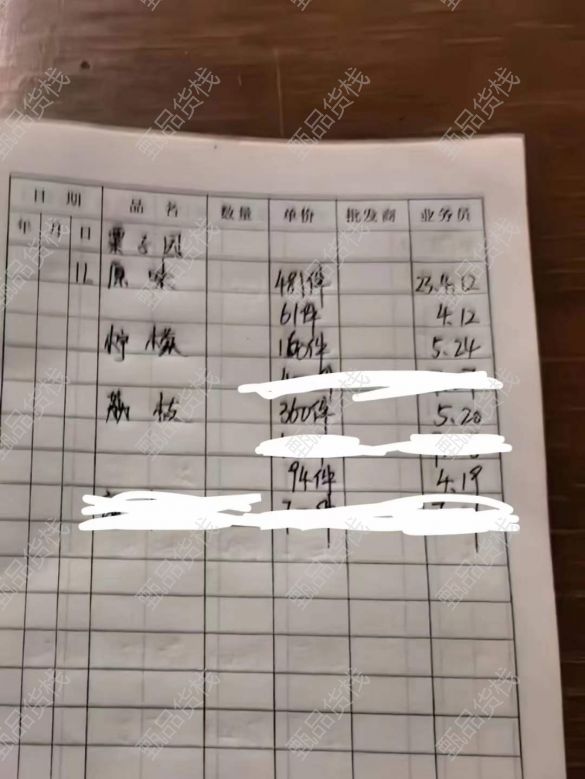 日期 品名 数量 单价 批发商 业务员
年 月 日
栗子园
11 原味 481件 23.4.12
61件 4.12
柠檬 160件 5.24
荔枝 360件 5.20
94件 4.19
甄品货栈